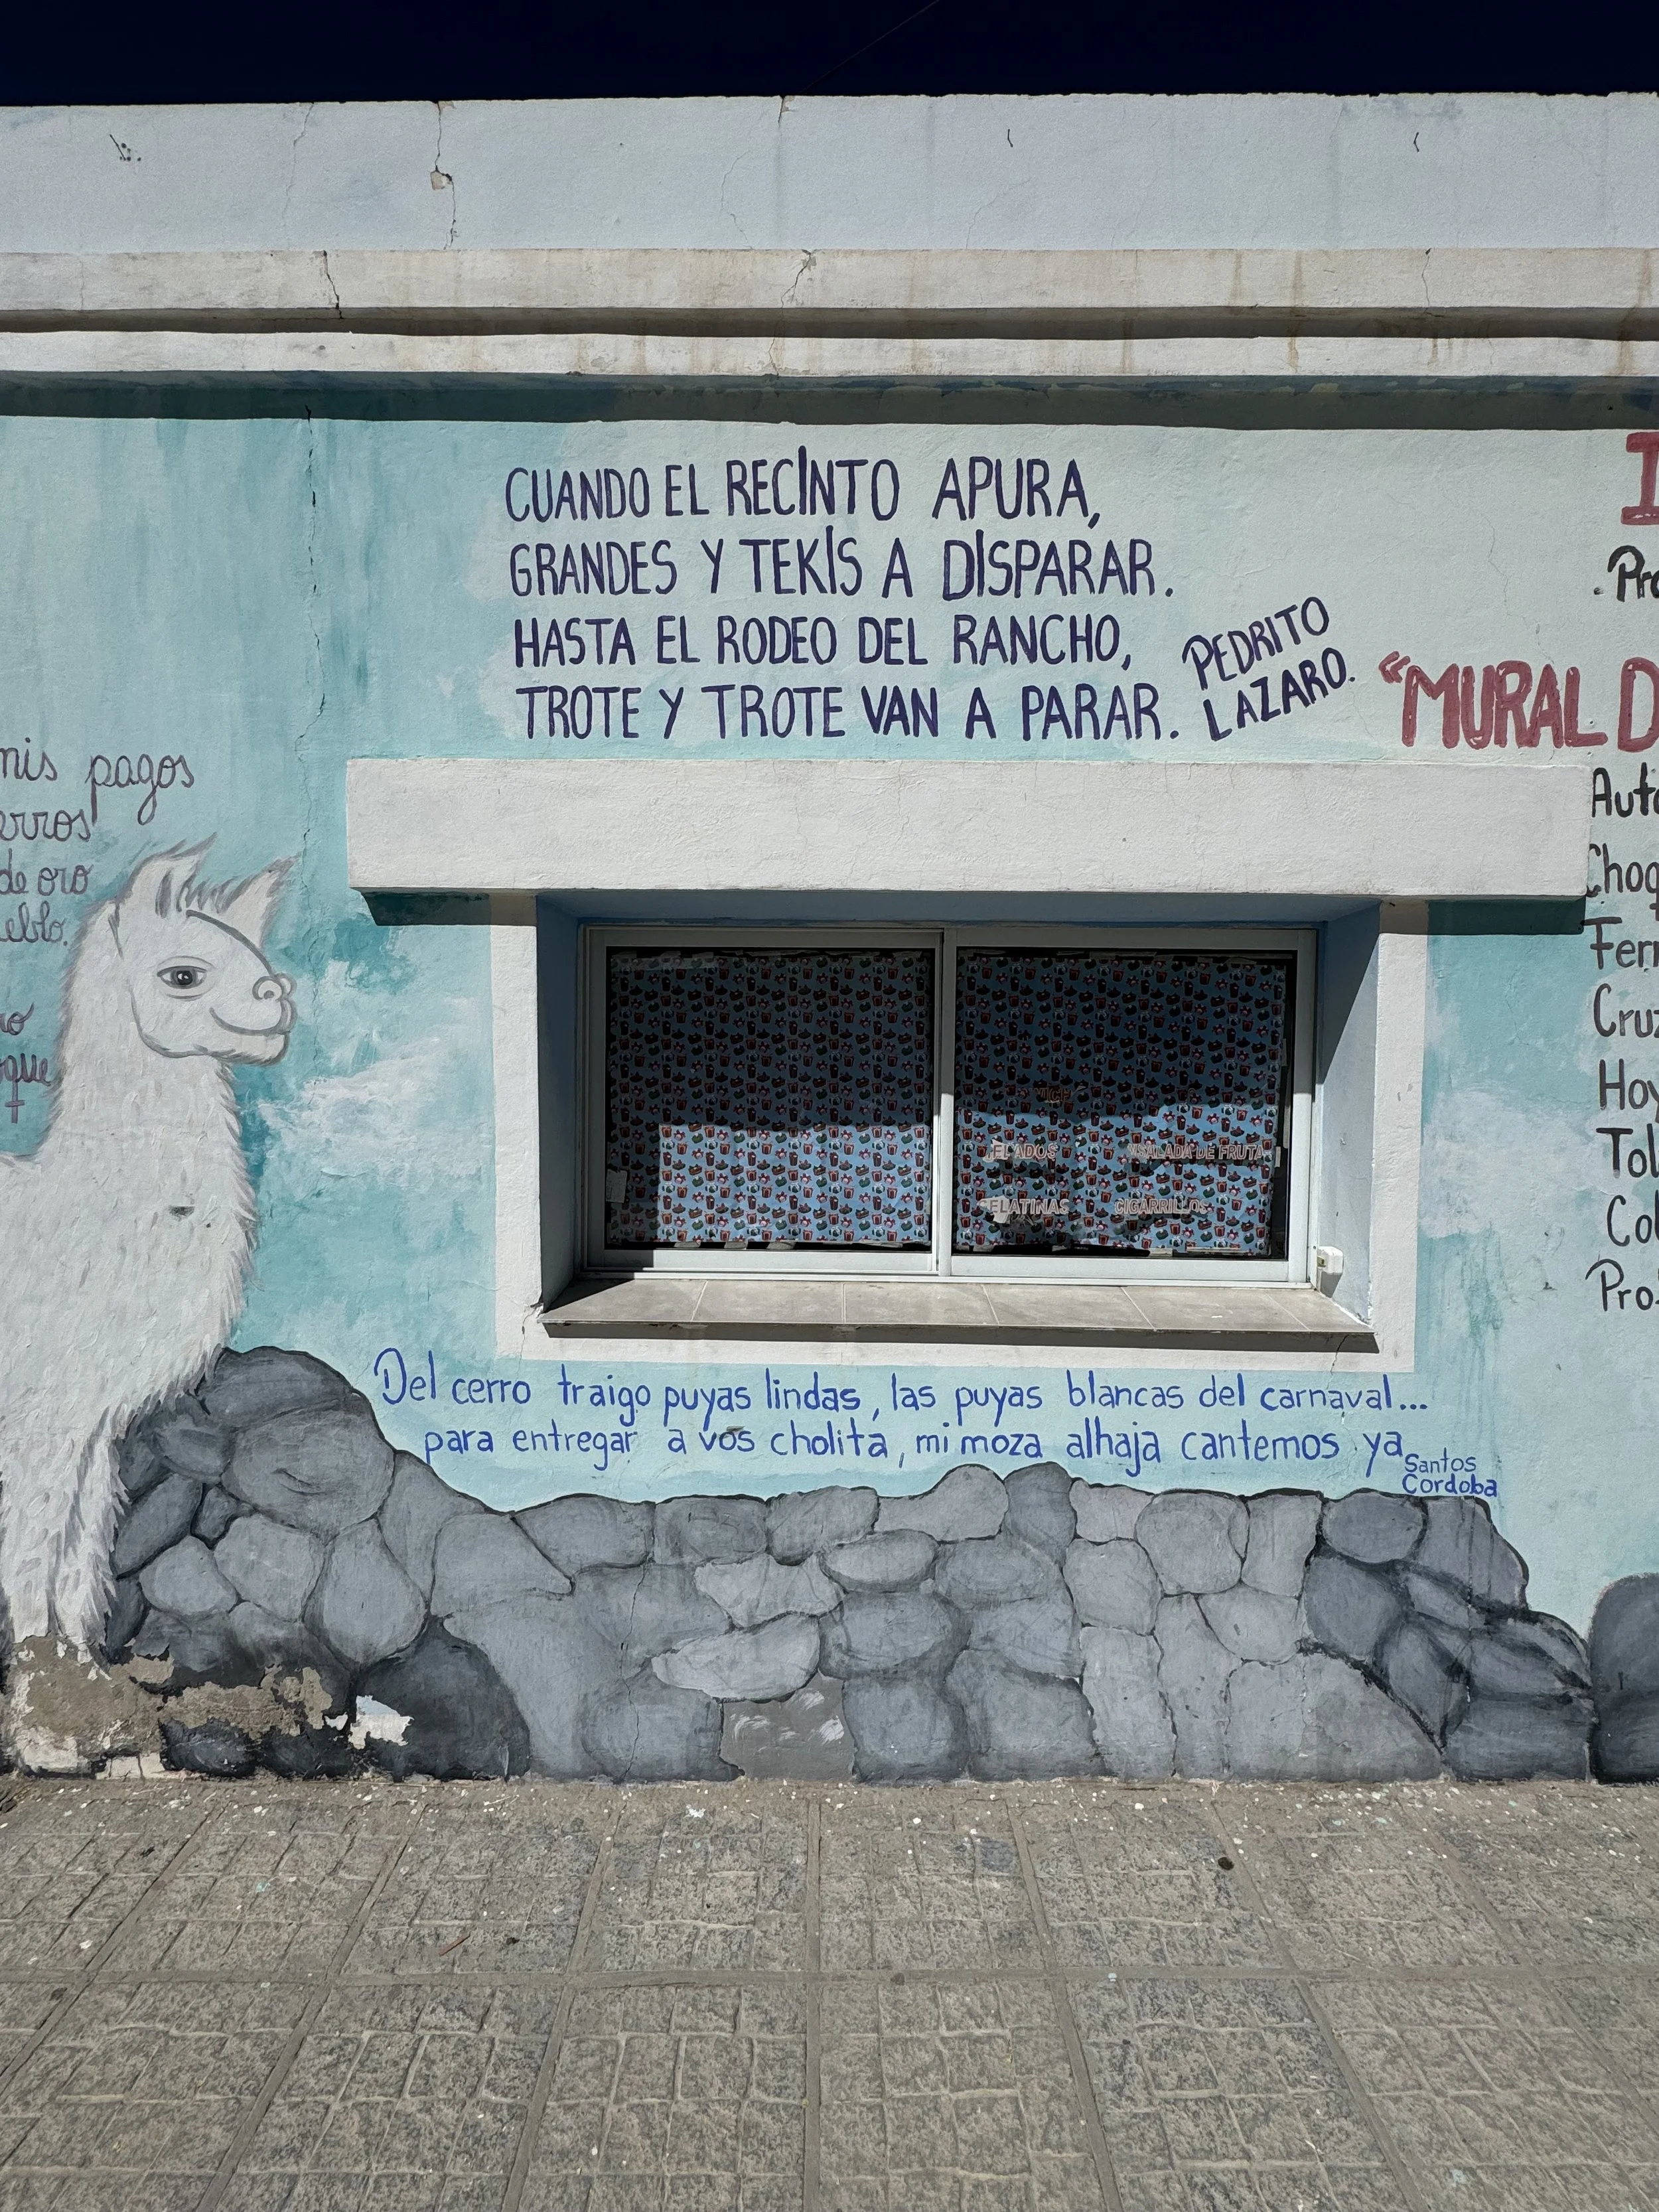 CUANDO EL RECINTO APURA,
GRANDES Y TEKIS A DISPARAR.
HASTA EL RODEO DEL RANCHO,
TROTE Y TROTE VAN A PARAR.
PEDRITO
LAZARO.
mis pagos
de oro
"MURAL D
HELADOS
ENSALADA DE FRUTA
GELATINAS
CIGARRILLOS
Del cerro traigo puyas lindas, las puyas blancas del carnaval...
para entregar a vos cholita, mi moza alhaja cantemos ya
Santos
Cordoba